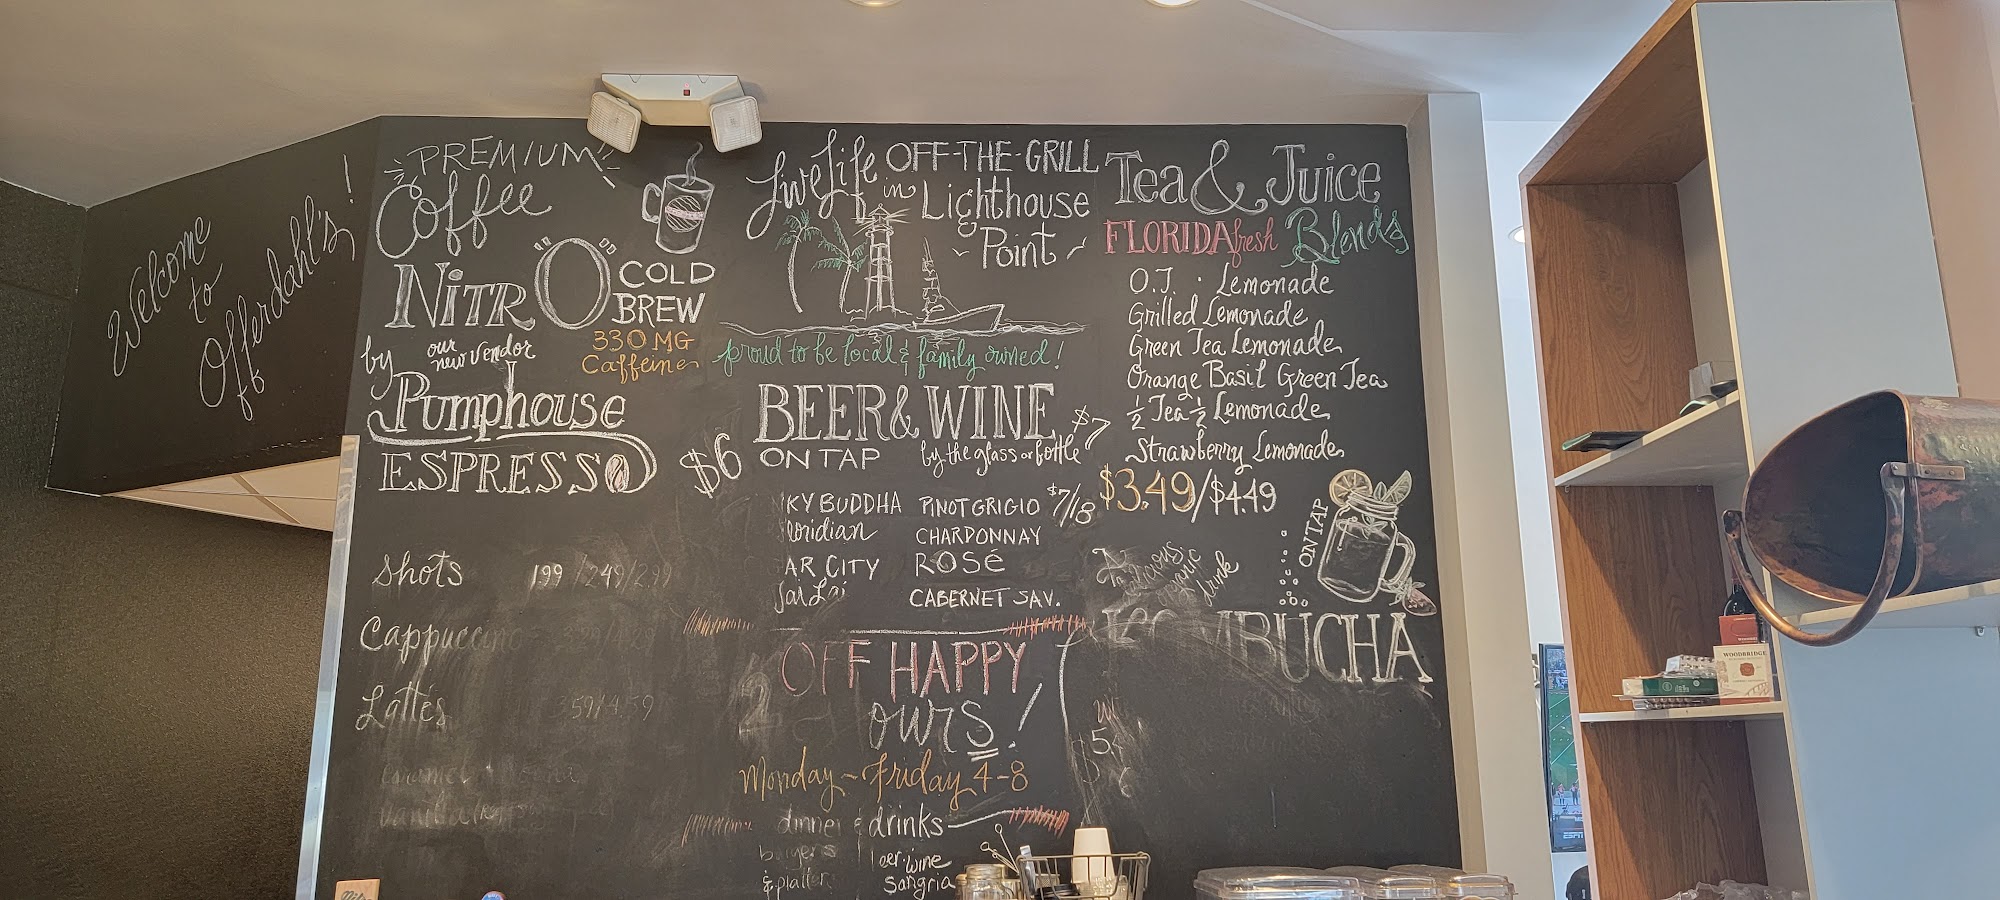 Welcome
to
Offerdahl's!
PREMIUM
Coffee
NiTR"O"
COLD
BREW
330 MG
Caffeine
by
our
new vendor
Pumphouse
ESPRESSO
$6
Shots 1.99/2.49/2.99
Cappuccino
Lattés 3.59/4.59
Live Life OFF-THE-GRILL
in Lighthouse
Point
proud to be local & family owned!
BEER & WINE
ON TAP
by the glass or bottle
$7
KY BUDDHA
loridian
AR CITY
Jai Lai
PINOT GRIGIO $7/18
CHARDONNAY
ROSÉ
CABERNET SAV.
2 OFF HAPPY
ours!
Monday - Friday 4-8
dinner & drinks
burgers
& platters
eer. wine
sangria
Tea & Juice
FLORIDA fresh Blends
O.J. · Lemonade
Grilled Lemonade
Green Tea Lemonade
Orange Basil Green Tea
½ Tea ½ Lemonade
Strawberry Lemonade
$3.49/$4.49
ON TAP
drink
KOMBUCHA
WOODBRIDGE